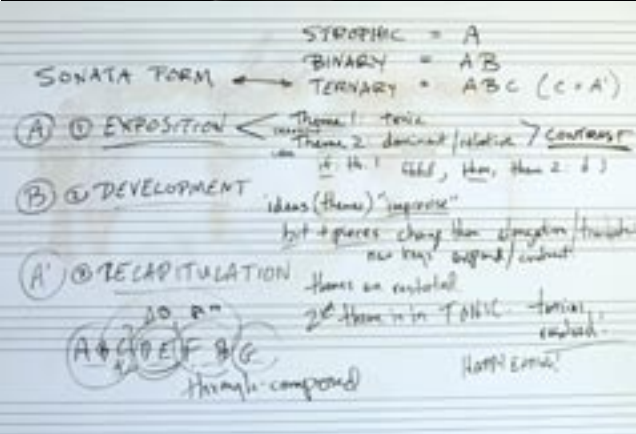 STROPHIC = A
BINARY = AB
SONATA FORM ⟷ TERNARY = ABC (C = A')
(A) ① EXPOSITION < Theme 1: tonic
Theme 2: dominant/relative > CONTRAST
if th. 1 then, them 2
(B) ② DEVELOPMENT
ideas (themes) "improvise"
bit + pieces change them elongation/
new keys expand/contract
(A') ③ RECAPITULATION
themes are restated
2nd theme is in TONIC. tension
resolved.
A B C D E F B G
HAPPY ENDING!
through-composed